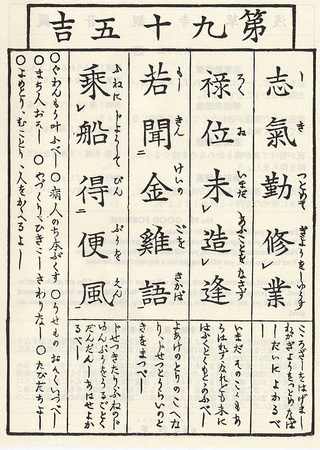 第九十五吉
志氣勤修業
し き つとめて ぎようをしゆうす
こゝろざしをはげまし
わがぎようをつとめなば
しだいによかるべし
禄位未造逢
ろく ゐ いまだ あふことをなさず
いまだそのこゝろもあ
らはれずなれども末に
はふくとくもとふべし
若聞金雞語
もし きん けいの ごを きかば
よあけのとりのこへな
りしじせつとうらいのと
きをまつべし
乗船得便風
ふねに じようして びん ぷうを えん
じせつきたりふねのじ
ゆんぷうをうるごとく
だんだんしあはせよか
るべし
○ぐわんもう叶ふべし ○病人 本ぶくす ○うせもの おそくいづべし
○まち人おそし ○やづくりひきこしさわりなし ○たびだちよし
○よめとりむことり人をかゝへるよし